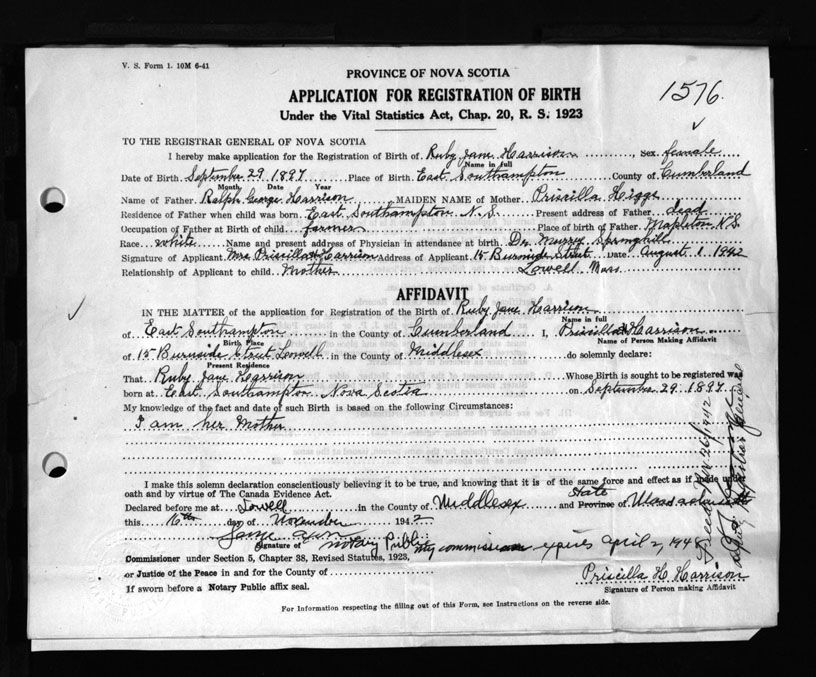 V. S. Form 1. 10M 6-41
PROVINCE OF NOVA SCOTIA
1576.
APPLICATION FOR REGISTRATION OF BIRTH
Under the Vital Statistics Act, Chap. 20, R. S. 1923
TO THE REGISTRAR GENERAL OF NOVA SCOTIA
I hereby make application for the Registration of Birth of Ruby Jane Harrison, Sex female
Name in full
Date of Birth September 29 1897 Place of Birth East Southampton County of Cumberland
Month Date Year
Name of Father Ralph George Harrison MAIDEN NAME of Mother Priscilla Higgs
Residence of Father when child was born East Southampton N.S. Present address of Father dead
Occupation of Father at Birth of child farmer Place of Birth of Father Mapleton N.S.
Race white Name and present address of Physician in attendance at birth Dr. Murray Springhill
Signature of Applicant Mrs Priscilla H Harrison Address of Applicant 15 Burnside Street Date August 1 1942
Relationship of Applicant to child Mother Lowell Mass
AFFIDAVIT
IN THE MATTER of the application for Registration of the Birth of Ruby Jane Harrison
Name in full
of East Southampton in the County of Cumberland I, Priscilla H Harrison
Birth Place Name of Person Making Affidavit
of 15 Burnside Street Lowell in the County of Middlesex do solemnly declare:
Present Residence
That Ruby Jane Harrison Whose Birth is sought to be registered was
born at East Southampton Nova Scotia on September 29 1897.
My knowledge of the fact and date of such Birth is based on the following Circumstances:
I am her Mother
I make this solemn declaration conscientiously believing it to be true, and knowing that it is of the same force and effect as if made under
oath and by virtue of The Canada Evidence Act.
State
Declared before me at Lowell in the County of Middlesex and Province of Massachusetts
this 16th day of November 1942
Signature of Notary Public My commission expires April 2, 194
Commissioner under Section 5, Chapter 38, Revised Statutes, 1923,
or Justice of the Peace in and for the County of
Priscilla H Harrison
If sworn before a Notary Public affix seal.
Signature of Person making Affidavit
For Information respecting the filling out of this Form, see Instructions on the reverse side.